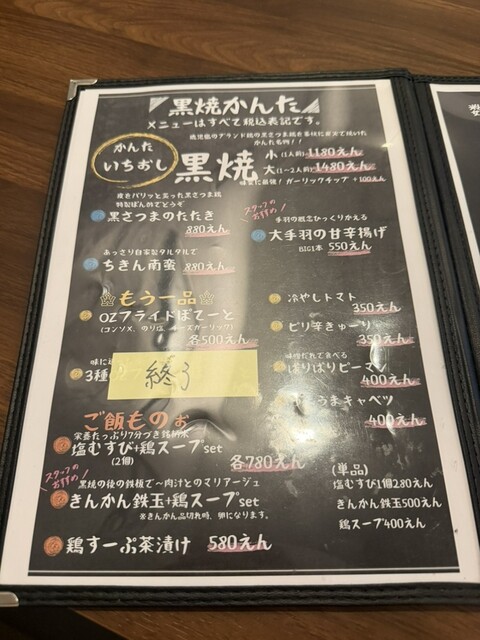 黒焼かんた
メニューはすべて税込表記です。
かんた
いちおし
黒焼
かんた名物!!
小(1人前)-1180えん
大(1~2人前)1480えん
味変に最強!ガーリックチップ +100えん
皮をパリッと炙った黒さつま鶏
特製ぽん酢でどうぞ
黒さつまのたたき
880えん
スタッフの
おすすめ!
手羽の概念ひっくりかえる
大手羽の甘辛揚げ
BIG1本 550えん
あっさり自家製タルタルで
ちきん南蛮 880えん
もう一品
OZフライドぽてーと
(コンソメ、のり塩、チーズガーリック)
各500えん
冷やしトマト
350えん
ピリ辛きゅーり
350えん
味噌だれで食べる
ぱりぱりピーマン
400えん
うまキャベツ
400えん
3種
終了
ご飯ものぉ
栄養たっぷり7分づき
塩むすび+鶏スープset
(2個)
各780えん
スタッフの
おすすめ!
黒焼の後の鉄板で~肉汁とのマリアージュ
きんかん鉄玉+鶏スープset
※きんかん品切れ時、卵になります。
鶏すーぷ茶漬け 580えん
(単品)
塩むすび1個280えん
きんかん鉄玉500えん
鶏スープ400えん